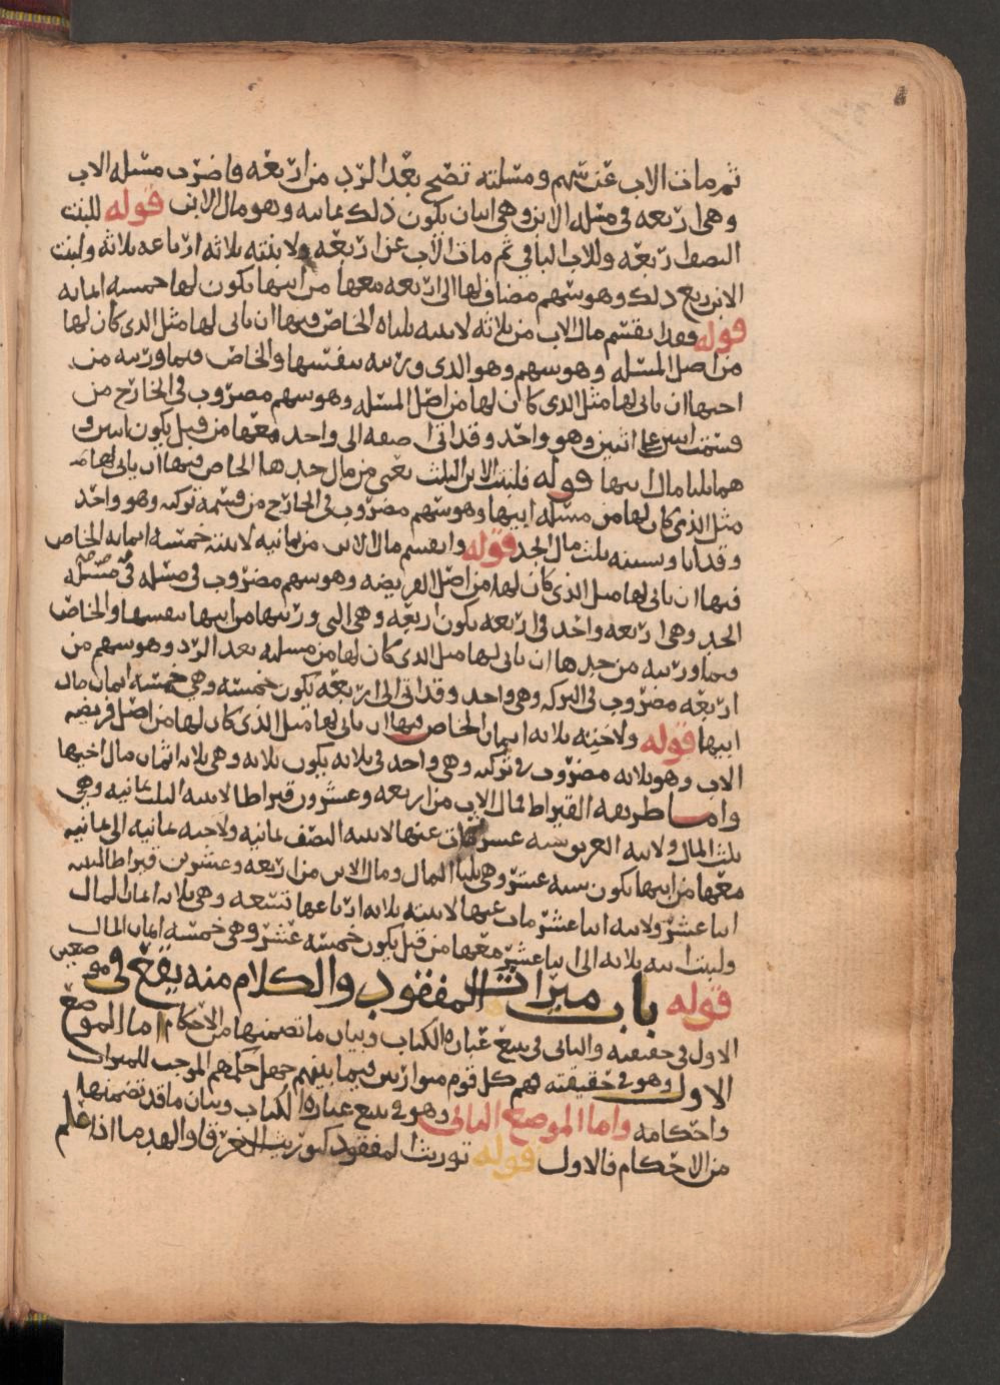 ثم مات الاب عن سهم ومسلته تصح بعد الرد من اربعه فاضرب مسله الاب
وهى اربعه فى مسله الابن وهى اثنان يكون ذلك ثمانيه وهو مال الابن قوله للبنت
النصف اربعه وللاب الباقى ثم مات الاب عن اربعه ولابنته ثلاثه ارباعه ثلاثه ولبنت
الابن ربع ذلك وهو سهم مضاف لها الى اربعه معها من ابيها يكون لها خمسه اثمانه
قوله وهذا يقسم مال الاب من ثلاثه لابنته ثلثاه الخاص فيها ان ياتى لها مثل الذى كان لها
من اصل المسله وهو سهم وهو الذى ورثته بنفسها والخاص فيما ورثته من
اختها ان ياتى لها مثل الذى كان لها من اصل المسله وهو سهم مضروب فى الخارج من
قسمت اثنين على اثنين وهو واحد وقد اتى اضفه الى واحد معها من قبل يكون اثنين و
هما ثلثا مال ابيها قوله فلبنت الابن الثلث يعنى من مال جدها الخاص فيها ان ياتى لها
مثل الذى كان لها من مسله ابيها وهو سهم مضروب فى الخارج من قسمة تركته وهو واحد
وقد اتا ونسبته ثلث مال الجد قوله وانقسم مال الابن من ثمانيه لابنته خمسه اثمانه الخاص
فيها ان ياتى لها مثل الذى كان لها من اصل الفريضه وهو سهم مضروب فى مسله فى مسله
الجد وهى اربعه واحد فى اربعه يكون اربعه وهى التى ورثتها من ابيها بنفسها والخاص
فيما ورثته من جدها ان ياتى لها مثل الذى كان لها من مسلته بعد الرد وهو سهم من
اربعه مضروب فى التركه وهى واحد وقد اتى الى اربعه يكون خمسه وهى خمسه اثمان مال
ابيها قوله ولاخته ثلاثه اثمان الخاص فيها ان ياتى لها مثل الذى كان لها من اصل فريضه
الاب وهو ثلاثه مضروب فى تركته وهى واحد فى ثلاثه يكون ثلاثه وهى ثلاثه اثمان مال اخيها
واما طريقه القيراط فمال الاب من اربعه وعشرون قيراطا لابنته الثلث ثمانيه وهى
ثلث المال ولابنه الغريق سته عشر مات عنها لابنته النصف ثمانيه ولاخته ثمانيه الى ثمانيه
معها من ابيها يكون سته عشر وهى ثلثا المال ومال الابن من اربعه وعشرين قيراطا لبنته
اثنا عشر ولابيه اثنا عشر مات عنها لابنته ثلاثه ارباعها تسعه وهى ثلاثه اثمان المال
ولبنت ابنه ثلاثه الى اثنا عشر معها من قبل يكون خمسه عشر وهى خمسه اثمان المال
قوله باب ميراث المفقود والكلام منه يقع فى موضعين
الاول فى حقيقته والثانى فى تتبع عبارة الكتاب وبيان ما تضمنها من الاحكام اما الموضع
الاول وهو فى حقيقته فهم كل قوم متوارثين فيما بينهم جهل حكمهم الموجب للميراث
واحكامه واما الموضع الثانى وهو فى تتبع عبارة الكتاب وبيان ما قد تضمنها
من الاحكام فالاول قوله توريث المفقود كتوريث الغرقا والهدما اذا علم